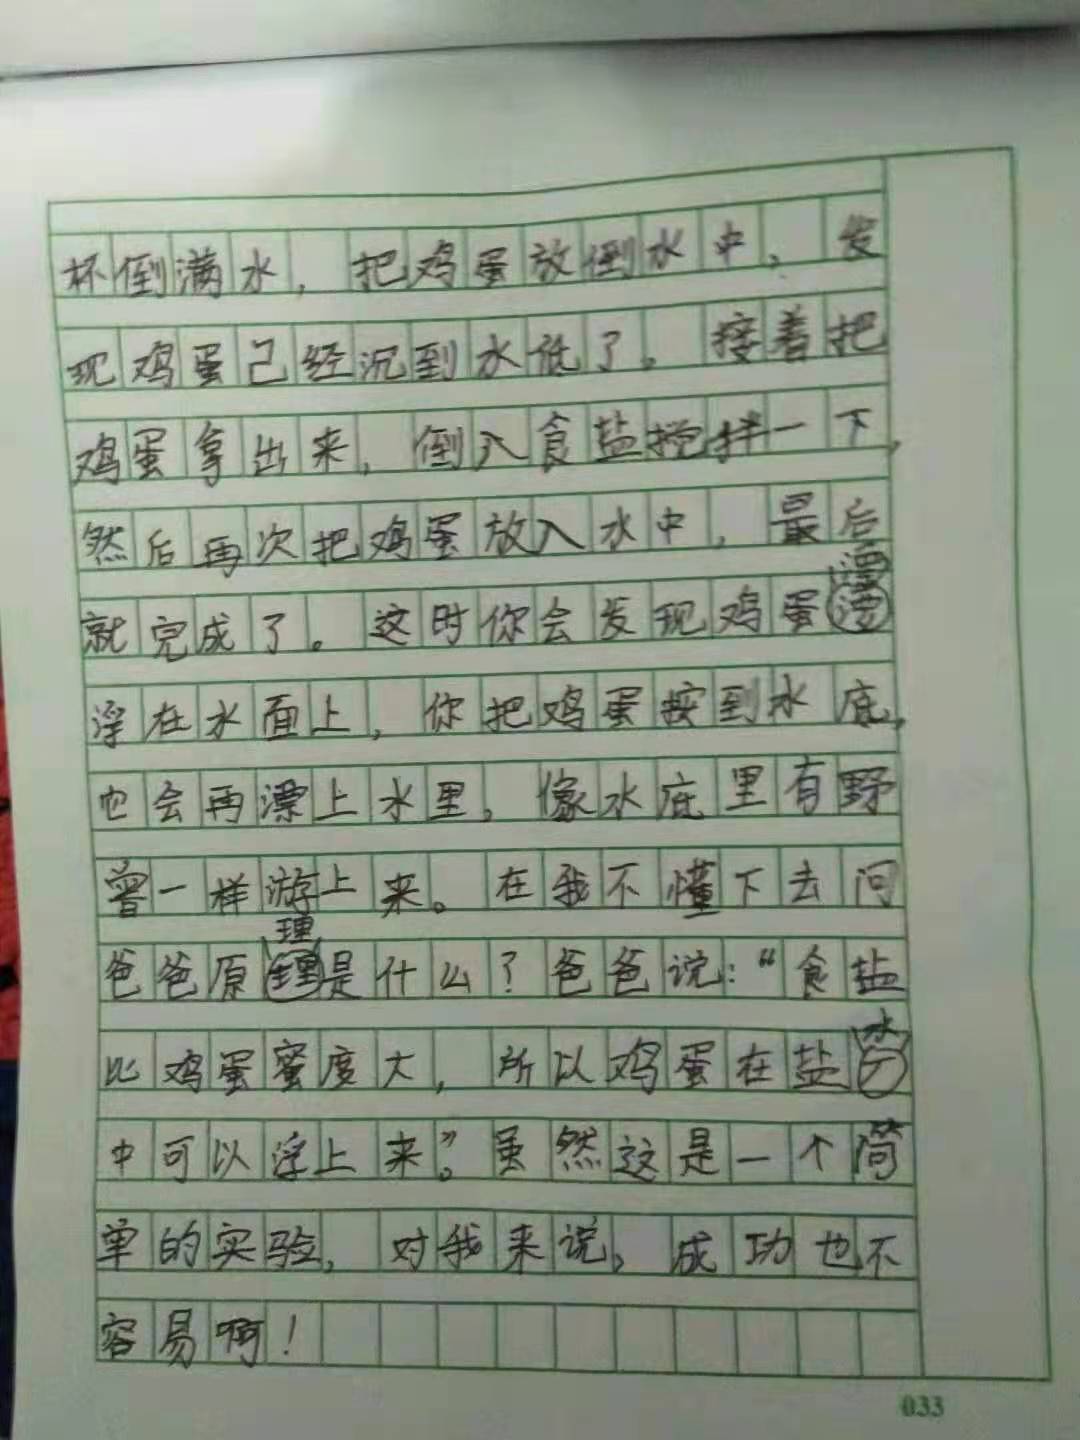 杯倒满水，把鸡蛋放倒水中，发
现鸡蛋己经沉到水低了。接着把
鸡蛋拿出来，倒入食盐搅拌一下，
然后再次把鸡蛋放入水中，最后
就完成了。这时你会发现鸡蛋漂
浮在水面上，你把鸡蛋按到水底，
也会再漂上水里，像水底里有野
曾一样游上来。在我不懂下去问
爸爸原理是什么？爸爸说：“食盐
比鸡蛋蜜度大，所以鸡蛋在盐水
中可以浮上来”。虽然这是一个简
单的实验，对我来说，成功也不
容易啊！
033